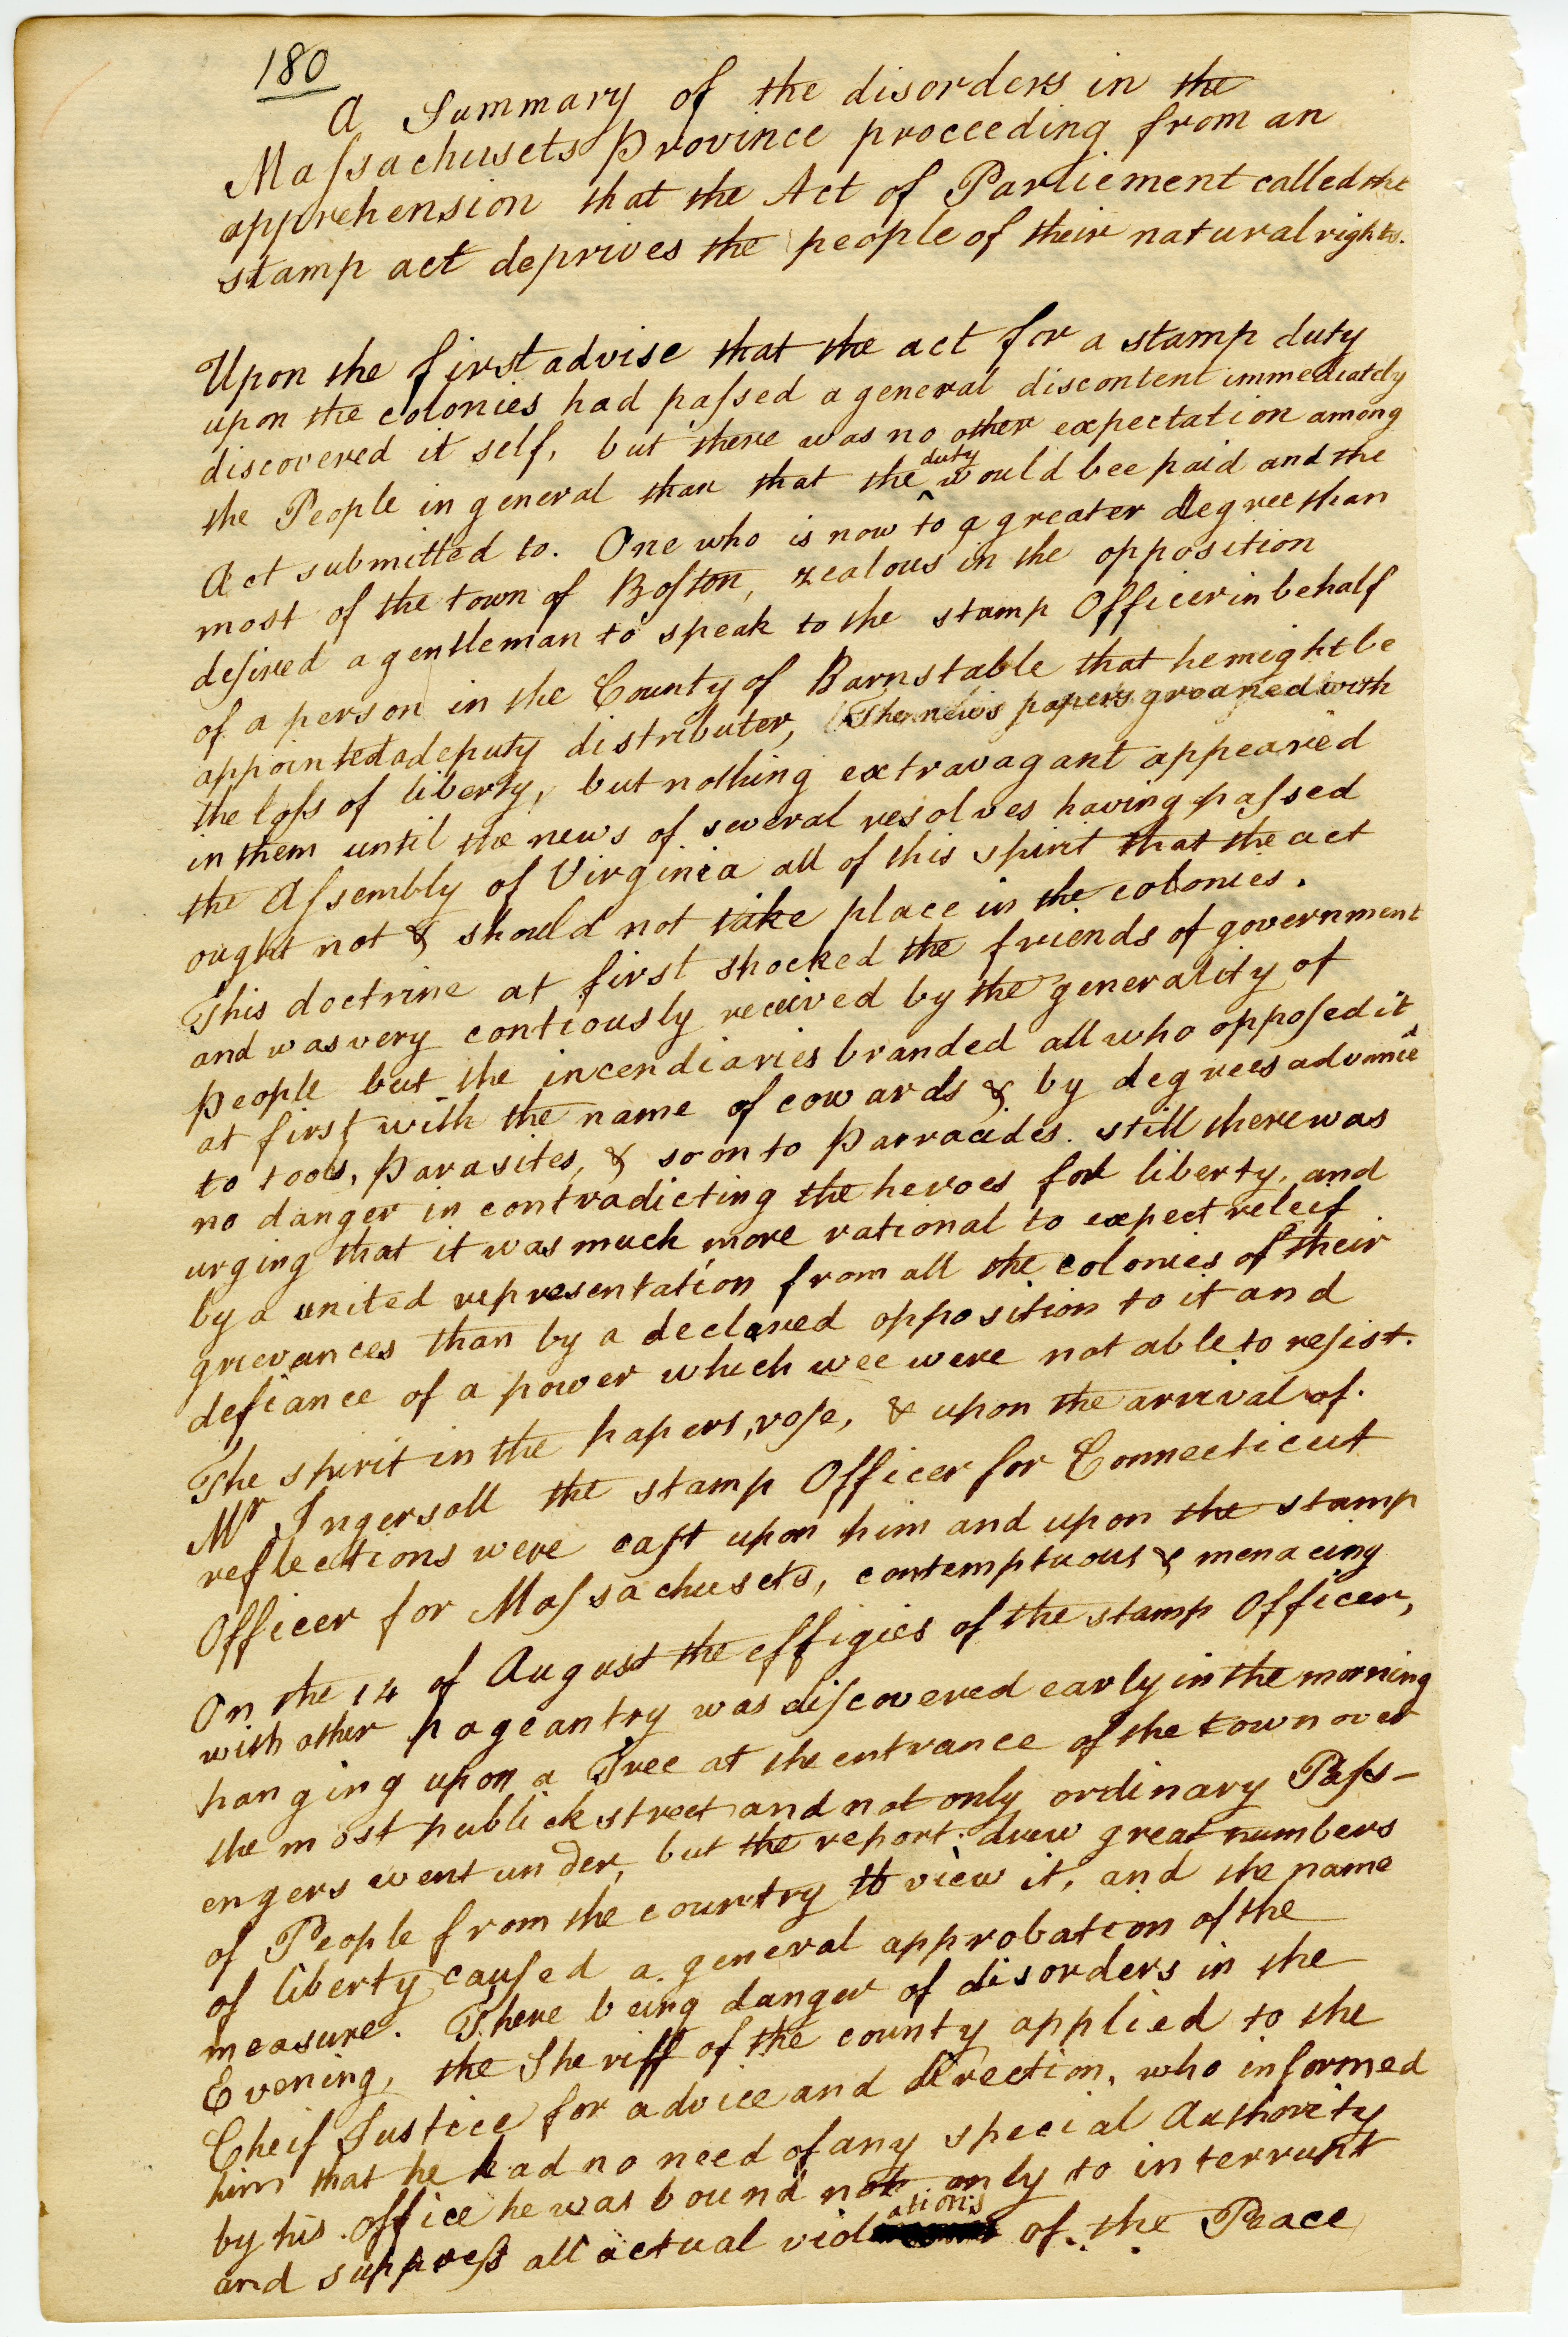 180
A Summary of the disorders in the
Maſsachusets Province proceeding from an
apprehension that the Act of Parliement called the
stamp act deprives the people of their natural rights.
Upon the first advise that the act for a stamp duty
upon the colonies had paſsed a general discontent immediately
discovered it self, but there was no other expectation among
the People in general than that the ^duty would bee paid and the
Act submitted to. One who is now to a greater degree than
most of the town of Boſton, zealous in the opposition
deſired a gentleman to speak to the stamp Officer in behalf
of a person in the County of Barnstable that he might be
appointed a deputy distributer, The news papers groaned with
the loſs of liberty, but nothing extravagant appeared
in them until the news of several resolves having paſsed
the Aſsembly of Virginia all of this spirit that the act
ought not & should not take place in the colonies.
This doctrine at first shocked the friends of government
and was very contiously received by the generality of
people but the incendiaries branded all who oppoſed it
at first with the name of cowards & by degrees advance
to tools, parasites, & soon to parracides. still there was
no danger in contradicting the heroes for liberty, and
urging that it was much more rational to expect releef
by a united representation from all the colonies of their
grievances than by a declared opposition to it and
defiance of a power which wee were not able to reſist.
The spirit in the papers, roſe, & upon the arrival of.
Mr Ingersoll the stamp Officer for Connecticut
reflections were caſt upon him and upon the stamp
Officer for Maſsachusets, contemptuous & menacing
On the 14 of August the effigies of the stamp Officer,
with other pageantry was diſcovered early in the morning
hanging upon a Tree at the entrance of the town over
the most publick street and not only ordinary Paſs-
engers went under, but the report drew great numbers
of People from the country to view it, and the name
of liberty cauſed a general approbation of the
measure. There being danger of disorders in the
Evening, the Sheriff of the county applied to the
Cheif Justice for advice and direction, who informed
him that he had no need of any special Authority
by his office he was bound not only to interrupt
and suppreſs all actual violations of the Peace